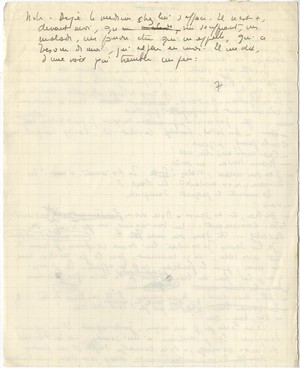 Note. Déjà le médecin chez lui s'efface. Il n'est +,
devant moi, qu'un malade, un souffrant, un
malade, un pauvre être qui m'appelle, qui a
besoin de moi, qui espère en moi. Il me dit,
d'une voix qui tremble un peu :
7